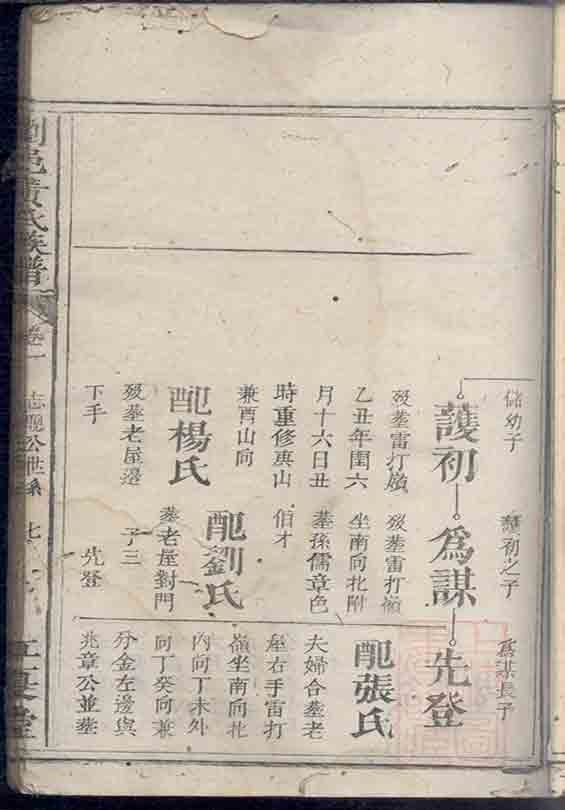 儲幼子
護初
歿塟雷打嶺
乙丑年閏六
月十六日丑
時重修庚山
兼酉山向
配楊氏
歿塟老屋邊
下手
護初之子
為謀
歿塟雷打嶺
坐南向北附
塟孫儒章色
伯才
配劉氏
塟老屋對門
子三
先登
為謀長子
先登
配張氏
夫婦合塟老
屋右手雷打
嶺坐南向北
內向丁未外
向丁癸向兼
分金左邊與
兆章公並塟
劉邑黃氏族譜
卷一
志聰公世系
七